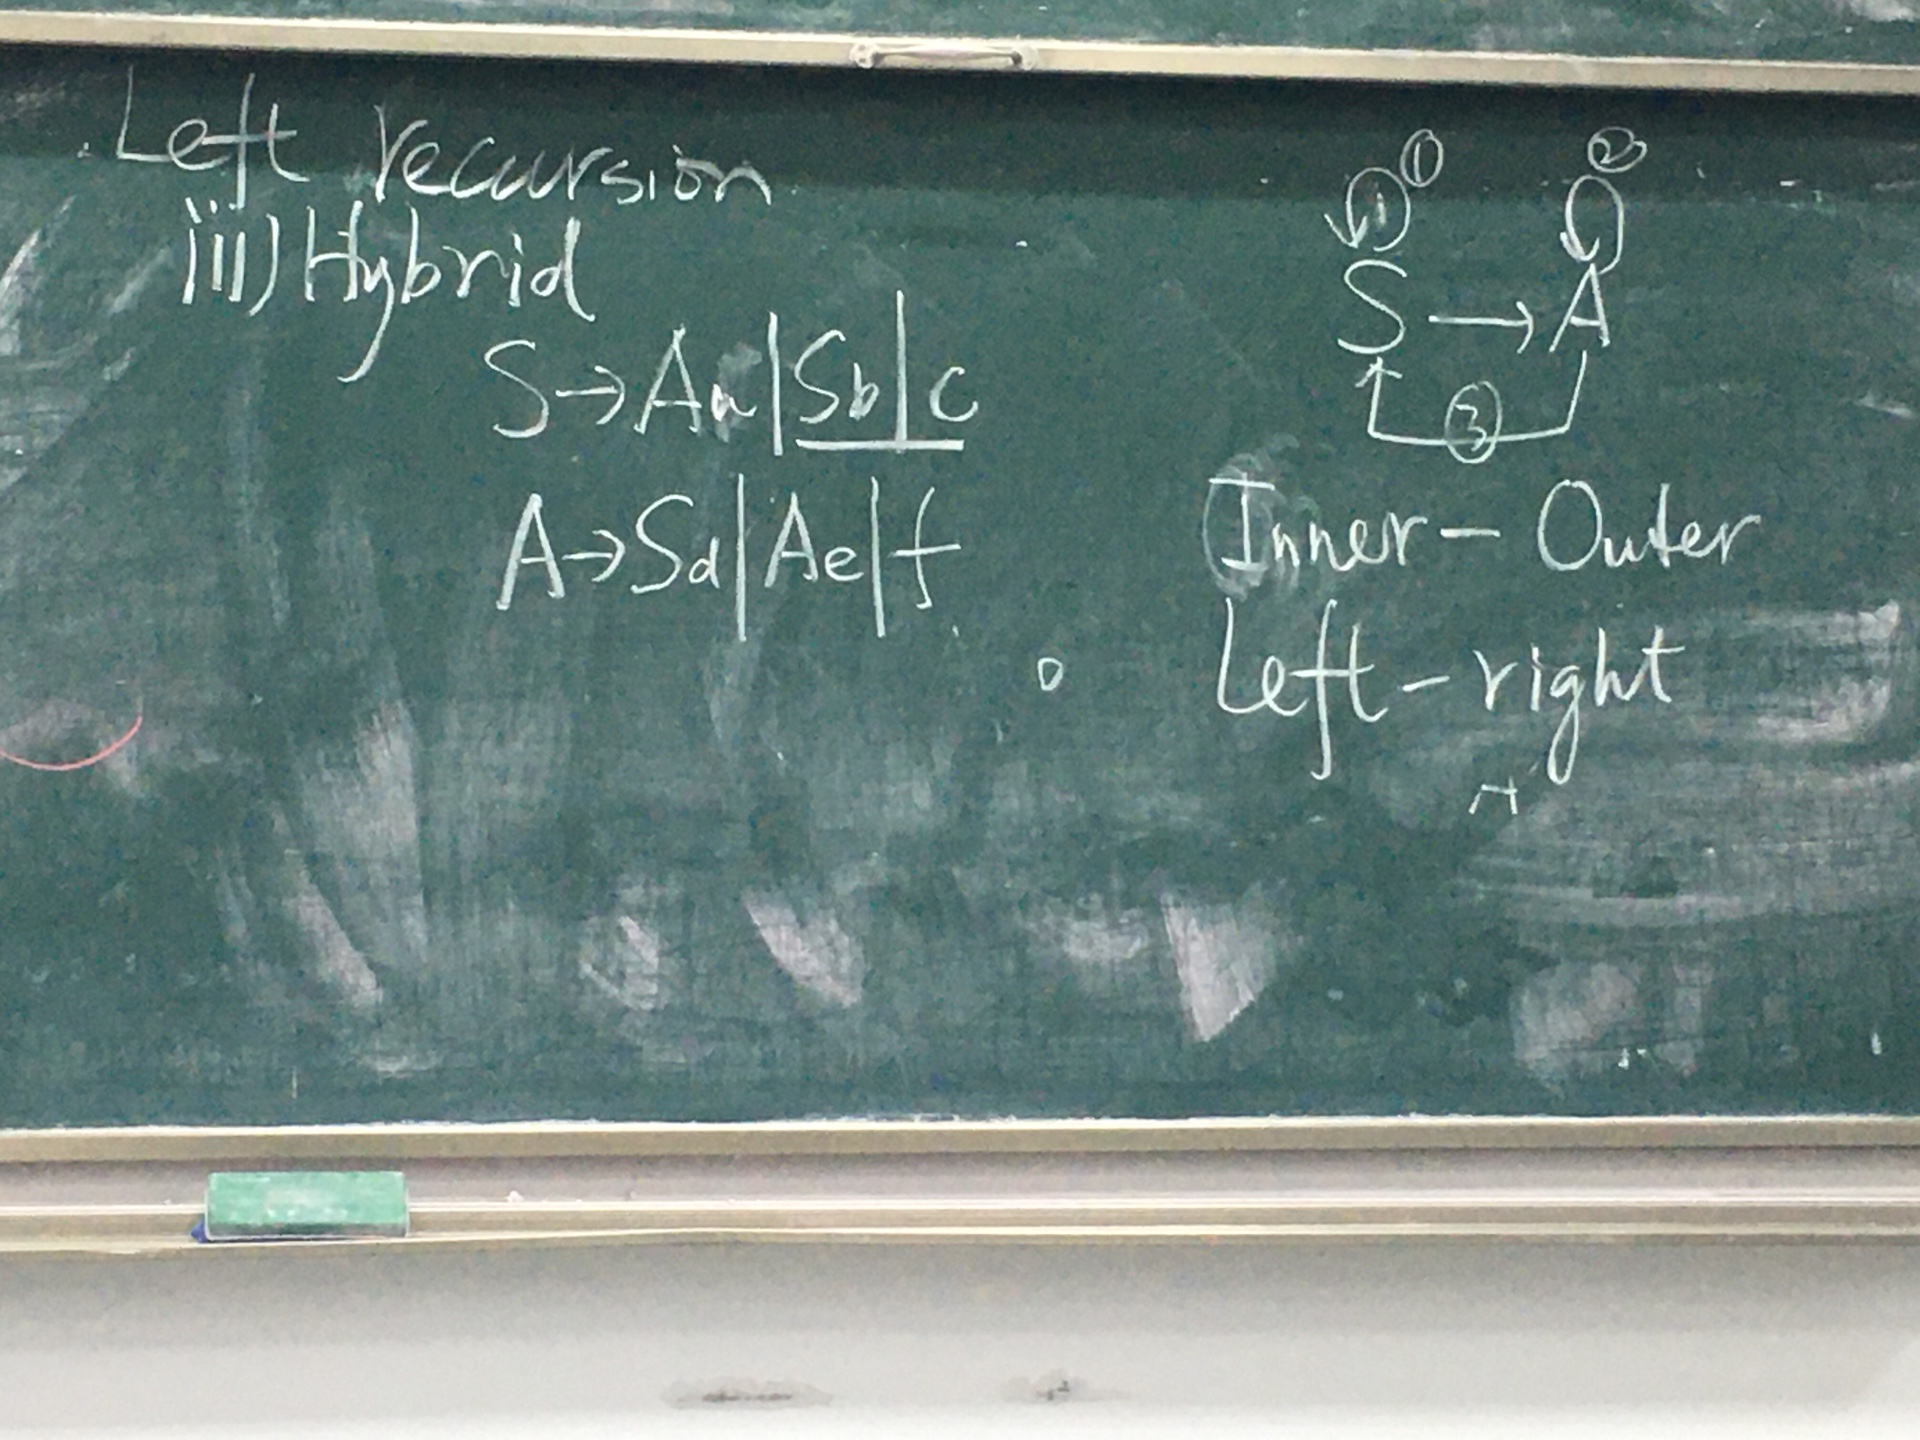 Left recursion
iii) Hybrid
S → Aa | Sb | c
A → Sd | Ae | f
① ②
S → A
③
Inner - Outer
Left - right